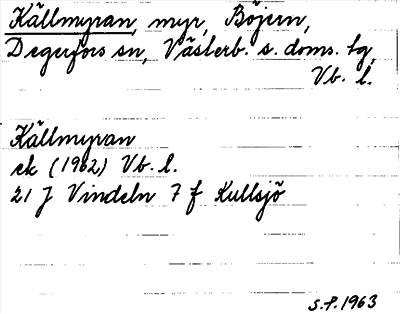 Källmyran, myr, Böjern,
Degerfors sn, Västerb. s. doms. tg,
Vb. l.
Källmyran
ek (1962) Vb. l.
21 J Vindeln 7 f Kullsjö
S.P. 1963